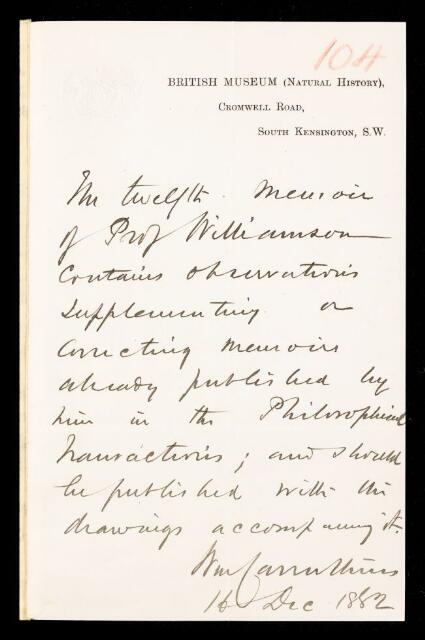 104
BRITISH MUSEUM (NATURAL HISTORY),
CROMWELL ROAD,
SOUTH KENSINGTON, S.W.
The twelfth memoir
of Prof Williamson
contains observations
supplementing or
correcting memoirs
already published by
him in the Philosophical
Transactions; and should
be published with the
drawings accompanying it.
Wm Carruthers
16 Dec 1882